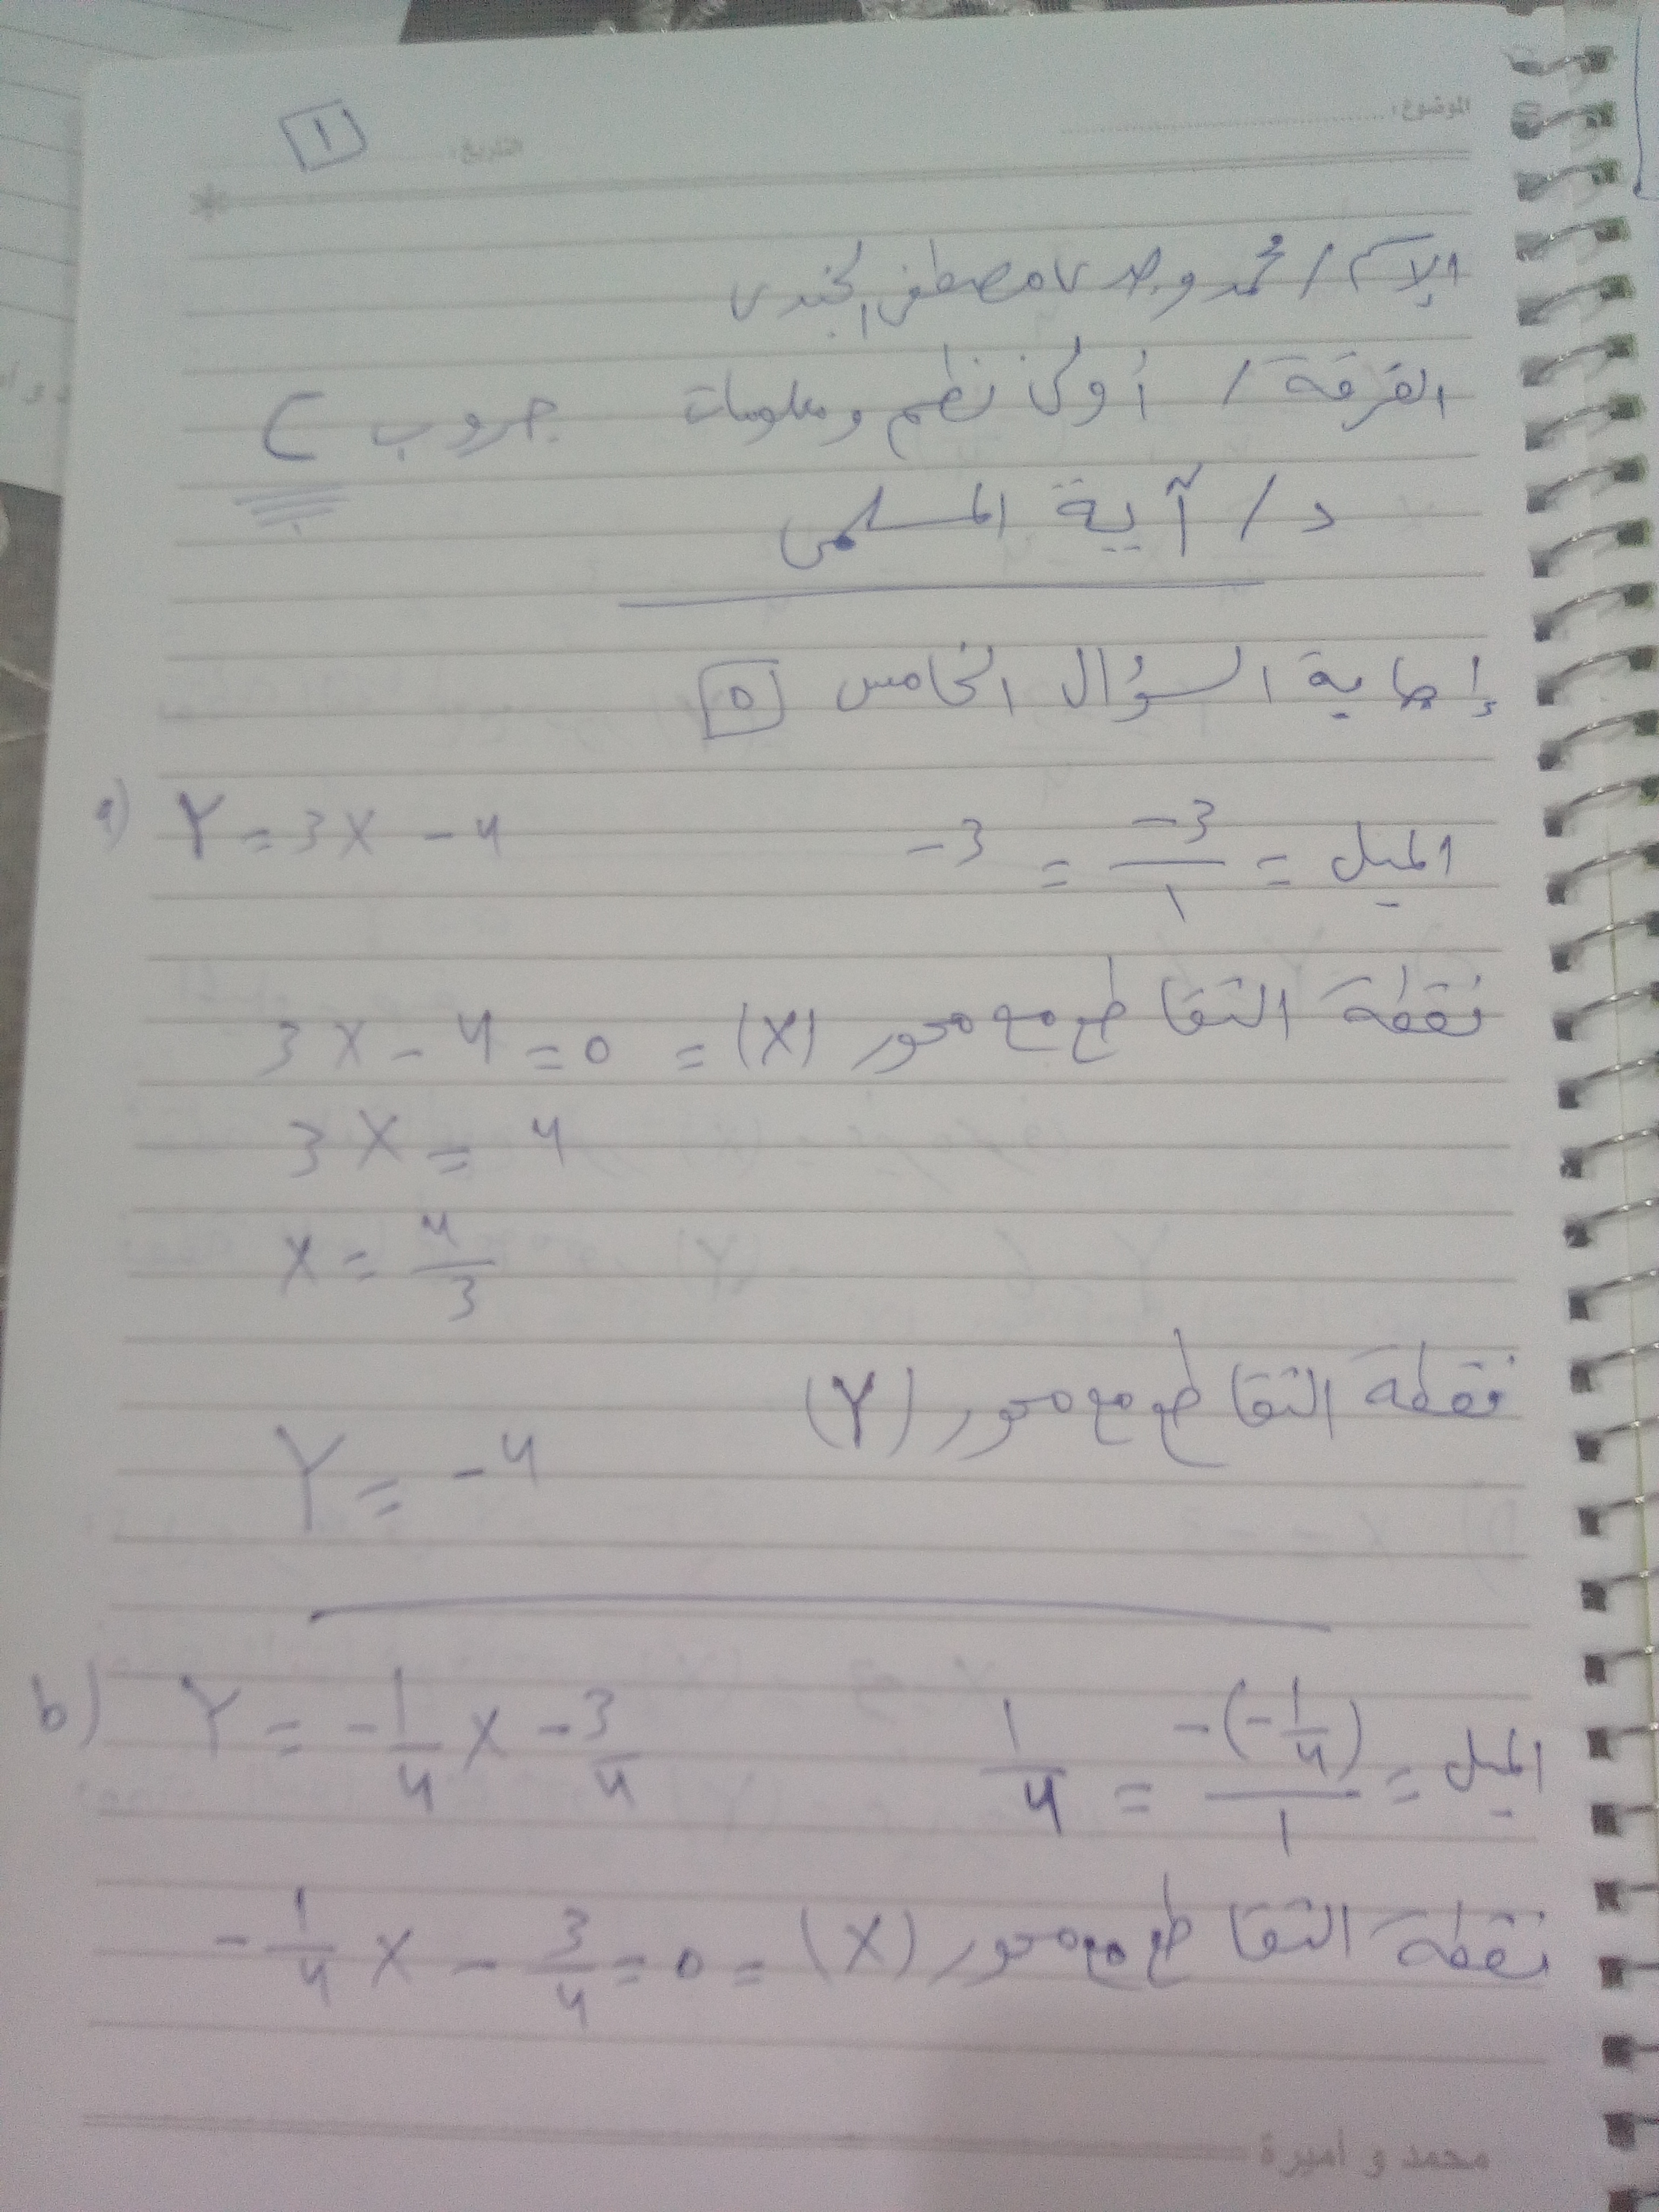 الموضوع:
التاريخ:
١
الإسم / محمد وجدى مصطفى الجندى
الفرقة / أولى نظم ومعلومات جروب C
د / آية المسلمى
إجابة السؤال الخامس ٥
a) Y = 3X - 4 الميل = -3/1 = -3
نقطة التقاطع مع محور (X) = 3X - 4 = 0
3X = 4
X = 4/3
نقطة التقاطع مع محور (Y)
Y = -4
b) Y = -1/4 X - 3/4 الميل = -(-1/4)/1 = 1/4
نقطة التقاطع مع محور (X) = -1/4 X - 3/4 = 0
محمد و أميرة